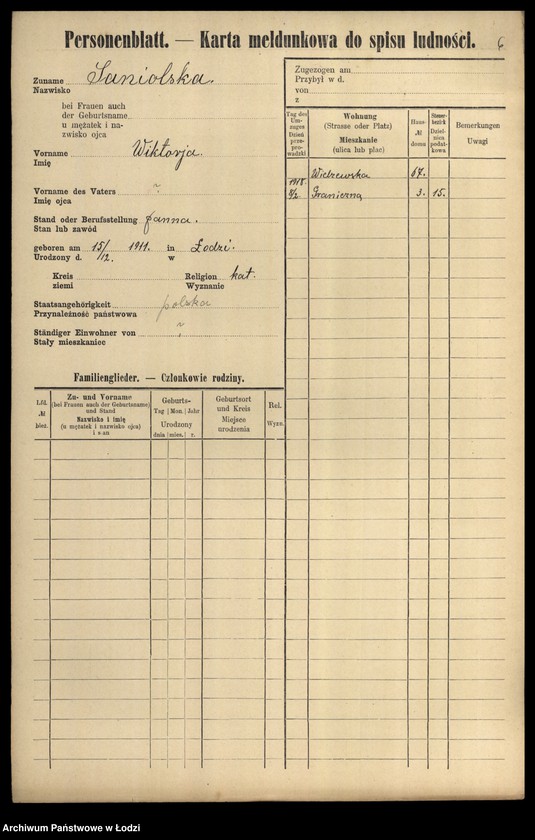 Personenblatt. — Karta meldunkowa do spisu ludności.
6
Zuname Saniolska.
Nazwisko
bei Frauen auch
der Geburtsname
u mężatek i na-
zwisko ojca
Vorname Wiktorja.
Imię
Vorname des Vaters ?
Imię ojca
Stand oder Berufsstellung panna.
Stan lub zawód
geboren am 15/12. 1911. in Łodzi.
Urodzony d. w
Kreis Religion kat.
ziemi Wyznanie
Staatsangehörigkeit polska
Przynależność państwowa
Ständiger Einwohner von ?
Stały mieszkaniec
Zugezogen am
Przybył w d.
von
z
Tag des Um-zuges Dzień przeprowadzki
Wohnung
(Strasse oder Platz)
Mieszkanie
(ulica lub plac)
Haus-
№
domu
Steuer-bezirk Dzielnica podatkowa
Bemerkungen
Uwagi
Widzewska 67.
1918.
8/2. Graniczna 3. 15.
Familienglieder. — Członkowie rodziny.
Lfd.
№
bież.
Zu- und Vorname
(bei Frauen auch der Geburtsname)
und Stand
Nazwisko i imię
(u mężatek i nazwisko ojca)
i stan
Geburts-
Tag | Mon. | Jahr
Urodzony
dnia | mies. | r.
Geburtsort
und Kreis
Miejsce
urodzenia
Rel.
Wyzn.
Archiwum Państwowe w Łodzi